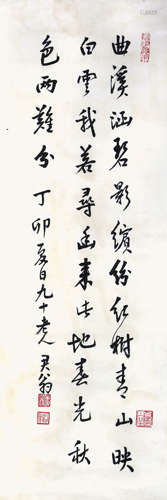 曲溪涵碧影缤纷红树青山映
白云我若寻幽来此地春光秋
色两难分 丁卯夏日九十老人 君翁